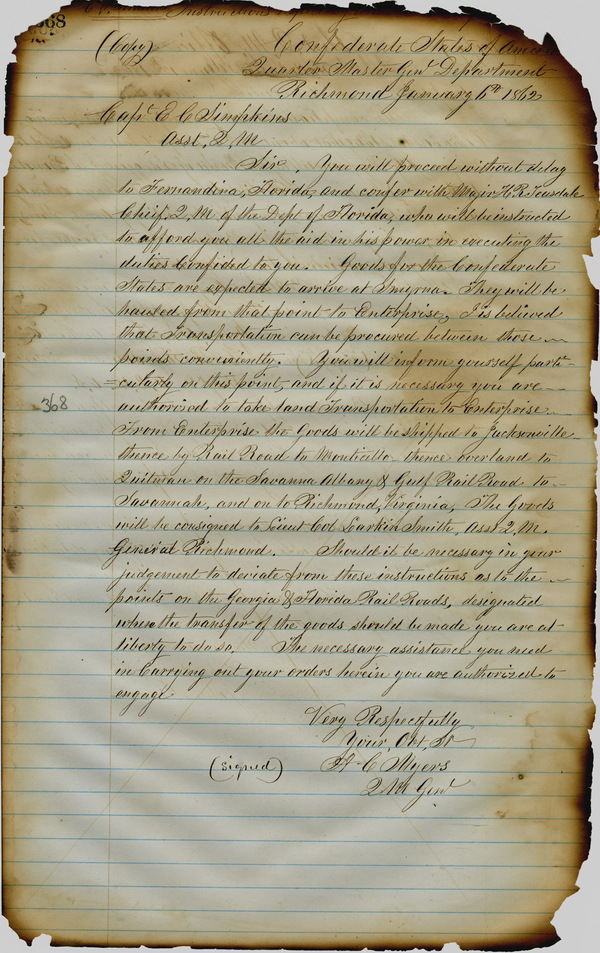 368
Instructions
(Copy) Confederate States of Ameri
Quarter Master Genl Department
Richmond January 6th 1862
Capt E C Simpkins
Asst, Q M
Sir, You will proceed without delay
to Fernandina, Florida, and confer with Major H. R. Teasdale
Chief, Q, M of the Dept of Florida, who will be instructed
to afford you all the aid in his power, in executing the
duties Confided to you. Goods for the Confederate
States are expected to arrive at Smyrna. They will be
hauled from that point to Enterprise, I is believed
that Transportation can be procured between those
points conveniently. You will inform yourself parti-
cularly on this point, and if it is necessary you are
368
authorised to take land Transportation to Enterprise
From Enterprise the Goods will be shipped to Jacksonville
thence by Rail Road to Monticello thence overland to
Quitman on the Savanna Albany & Gulf Rail Road to
Savannah, and on to Richmond, Virginia, The Goods
will be consigned to Lieut Col Larkin Smith, Asst Q, M.
General Richmond. Should it be necessary in your
judgement to deviate from these instructions as to the
points on the Georgia & Florida Rail Roads, designated
where the transfer of the goods should be made you are at
liberty to do so, The necessary assistance you need
in Carrying out your orders herein you are authorized to
engage
Very Respectfully
Your, Obt, St
(signed) A C Myers
Q M Genl